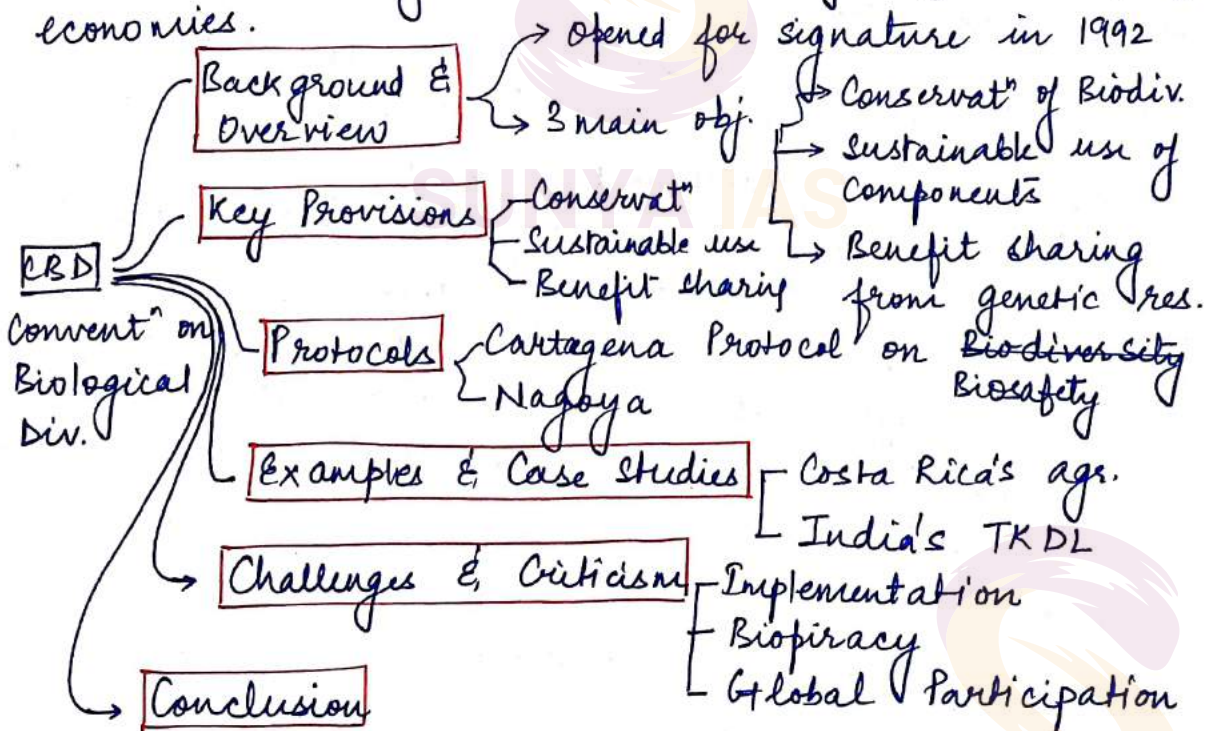 economies.
Background &
Overview
→ Opened for signature in 1992
→ 3 main obj.
→ Conservatⁿ of Biodiv.
→ Sustainable use of
Components
→ Benefit sharing
from genetic res.
Key Provisions
Conservatⁿ
Sustainable use
Benefit sharing
CBD
Conventⁿ on
Biological
Div.
Protocols
Cartagena Protocol on Biodiversity
Biosafety
Nagoya
Examples & Case Studies
Costa Rica's agr.
India's TKDL
Challenges & Criticism
Implementation
Biopiracy
Global Participation
Conclusion
SUNYA IAS